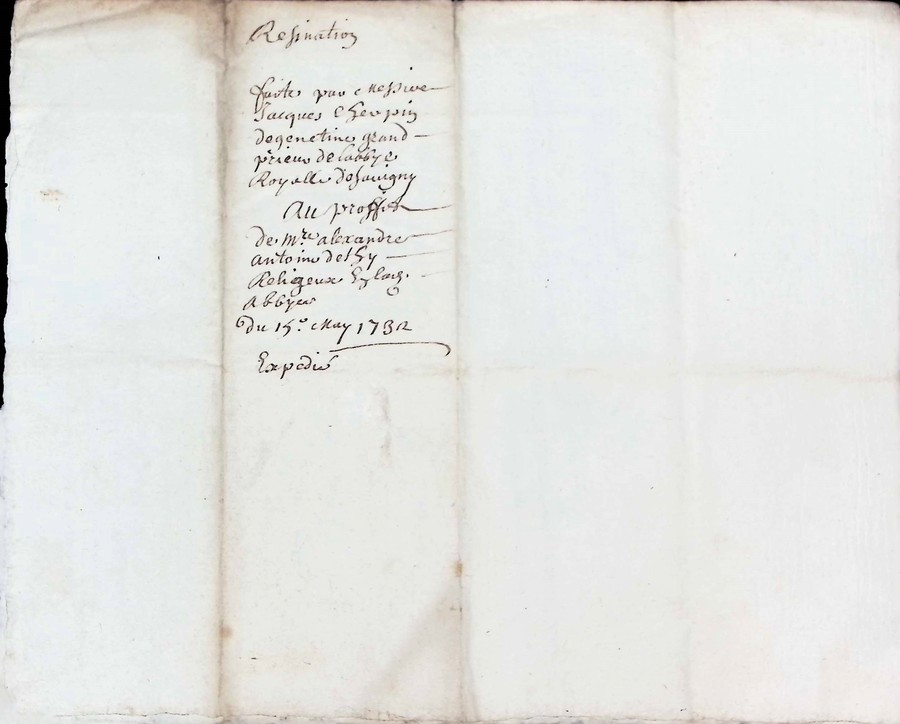 Resination
faite par Messire
Jacques Cherpin
degenetine grand
prieur de labbye
Royalle de Savigny
Au proffit
de Mre alexandre
antoine de thy
Religieux En lad.
Abbye
Du 15e May 1732
Expédié